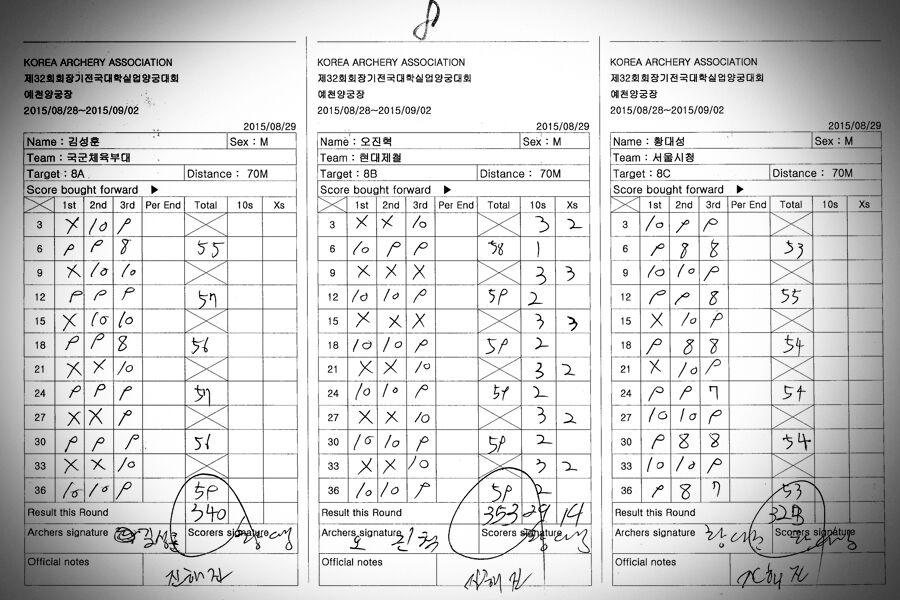 8
KOREA ARCHERY ASSOCIATION
제32회회장기전국대학실업양궁대회
예천양궁장
2015/08/28~2015/09/02
2015/08/29
Name : 김성훈 Sex : M
Team : 국군체육부대
Target : 8A Distance : 70M
Score bought forward ▶
1st 2nd 3rd Per End Total 10s Xs
3 X 10 9
6 9 9 8 55
9 X 10 10
12 9 9 9 57
15 X 10 10
18 9 9 8 56
21 X X 10
24 9 9 9 57
27 X X 9
30 9 9 9 56
33 X X 10
36 10 10 9 59
Result this Round 340
Archers signature 김성훈 Scorers signature
Official notes
KOREA ARCHERY ASSOCIATION
제32회회장기전국대학실업양궁대회
예천양궁장
2015/08/28~2015/09/02
2015/08/29
Name : 오진혁 Sex : M
Team : 현대제철
Target : 8B Distance : 70M
Score bought forward ▶
1st 2nd 3rd Per End Total 10s Xs
3 X X 10 3 2
6 10 9 9 58 1
9 X X X 3 3
12 10 10 9 59 2
15 X X X 3 3
18 10 10 9 59 2
21 X X 10 3 2
24 10 10 9 59 2
27 X X 10 3 2
30 10 10 9 59 2
33 X X 10 3 2
36 10 10 9 59 2
Result this Round 353 29 14
Archers signature 오진혁 Scorers signature
Official notes
KOREA ARCHERY ASSOCIATION
제32회회장기전국대학실업양궁대회
예천양궁장
2015/08/28~2015/09/02
2015/08/29
Name : 황대성 Sex : M
Team : 서울시청
Target : 8C Distance : 70M
Score bought forward ▶
1st 2nd 3rd Per End Total 10s Xs
3 10 9 9
6 9 8 8 53
9 10 10 9
12 9 9 8 55
15 X 10 9
18 9 8 8 54
21 X 10 9
24 9 9 7 54
27 10 10 9
30 9 8 8 54
33 10 10 9
36 9 8 7 53
Result this Round 323
Archers signature Scorers signature
Official notes